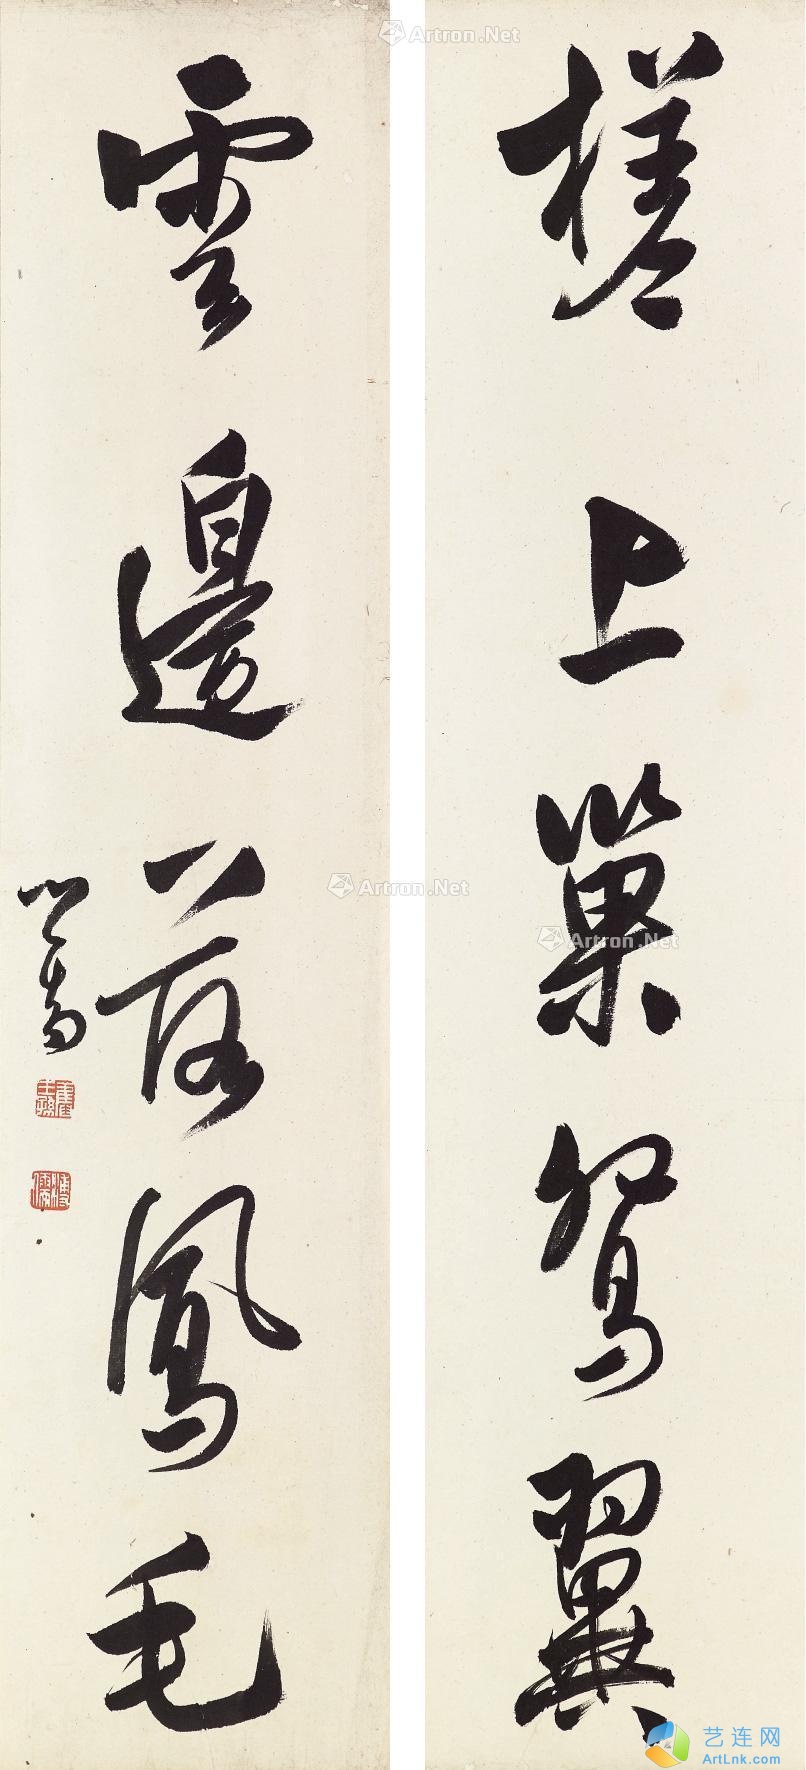 槎上巢鴛翼
雲邊落鳳毛
心畬
舊王孫
溥儒
Artron.Net
Artron.Net
Artron.Net
艺连网
ArtLnk.com